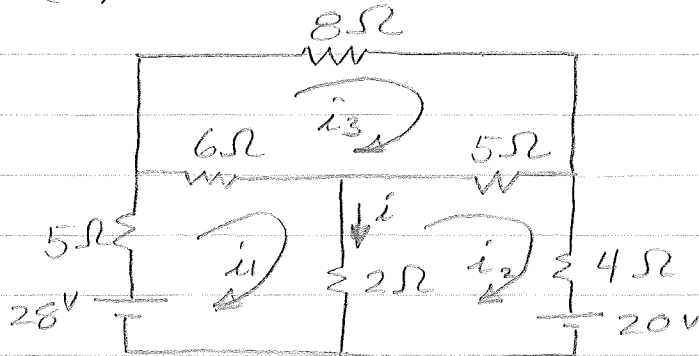 8Ω
i3
6Ω 5Ω
5Ω i1 i 2Ω i2 4Ω
28V 20V